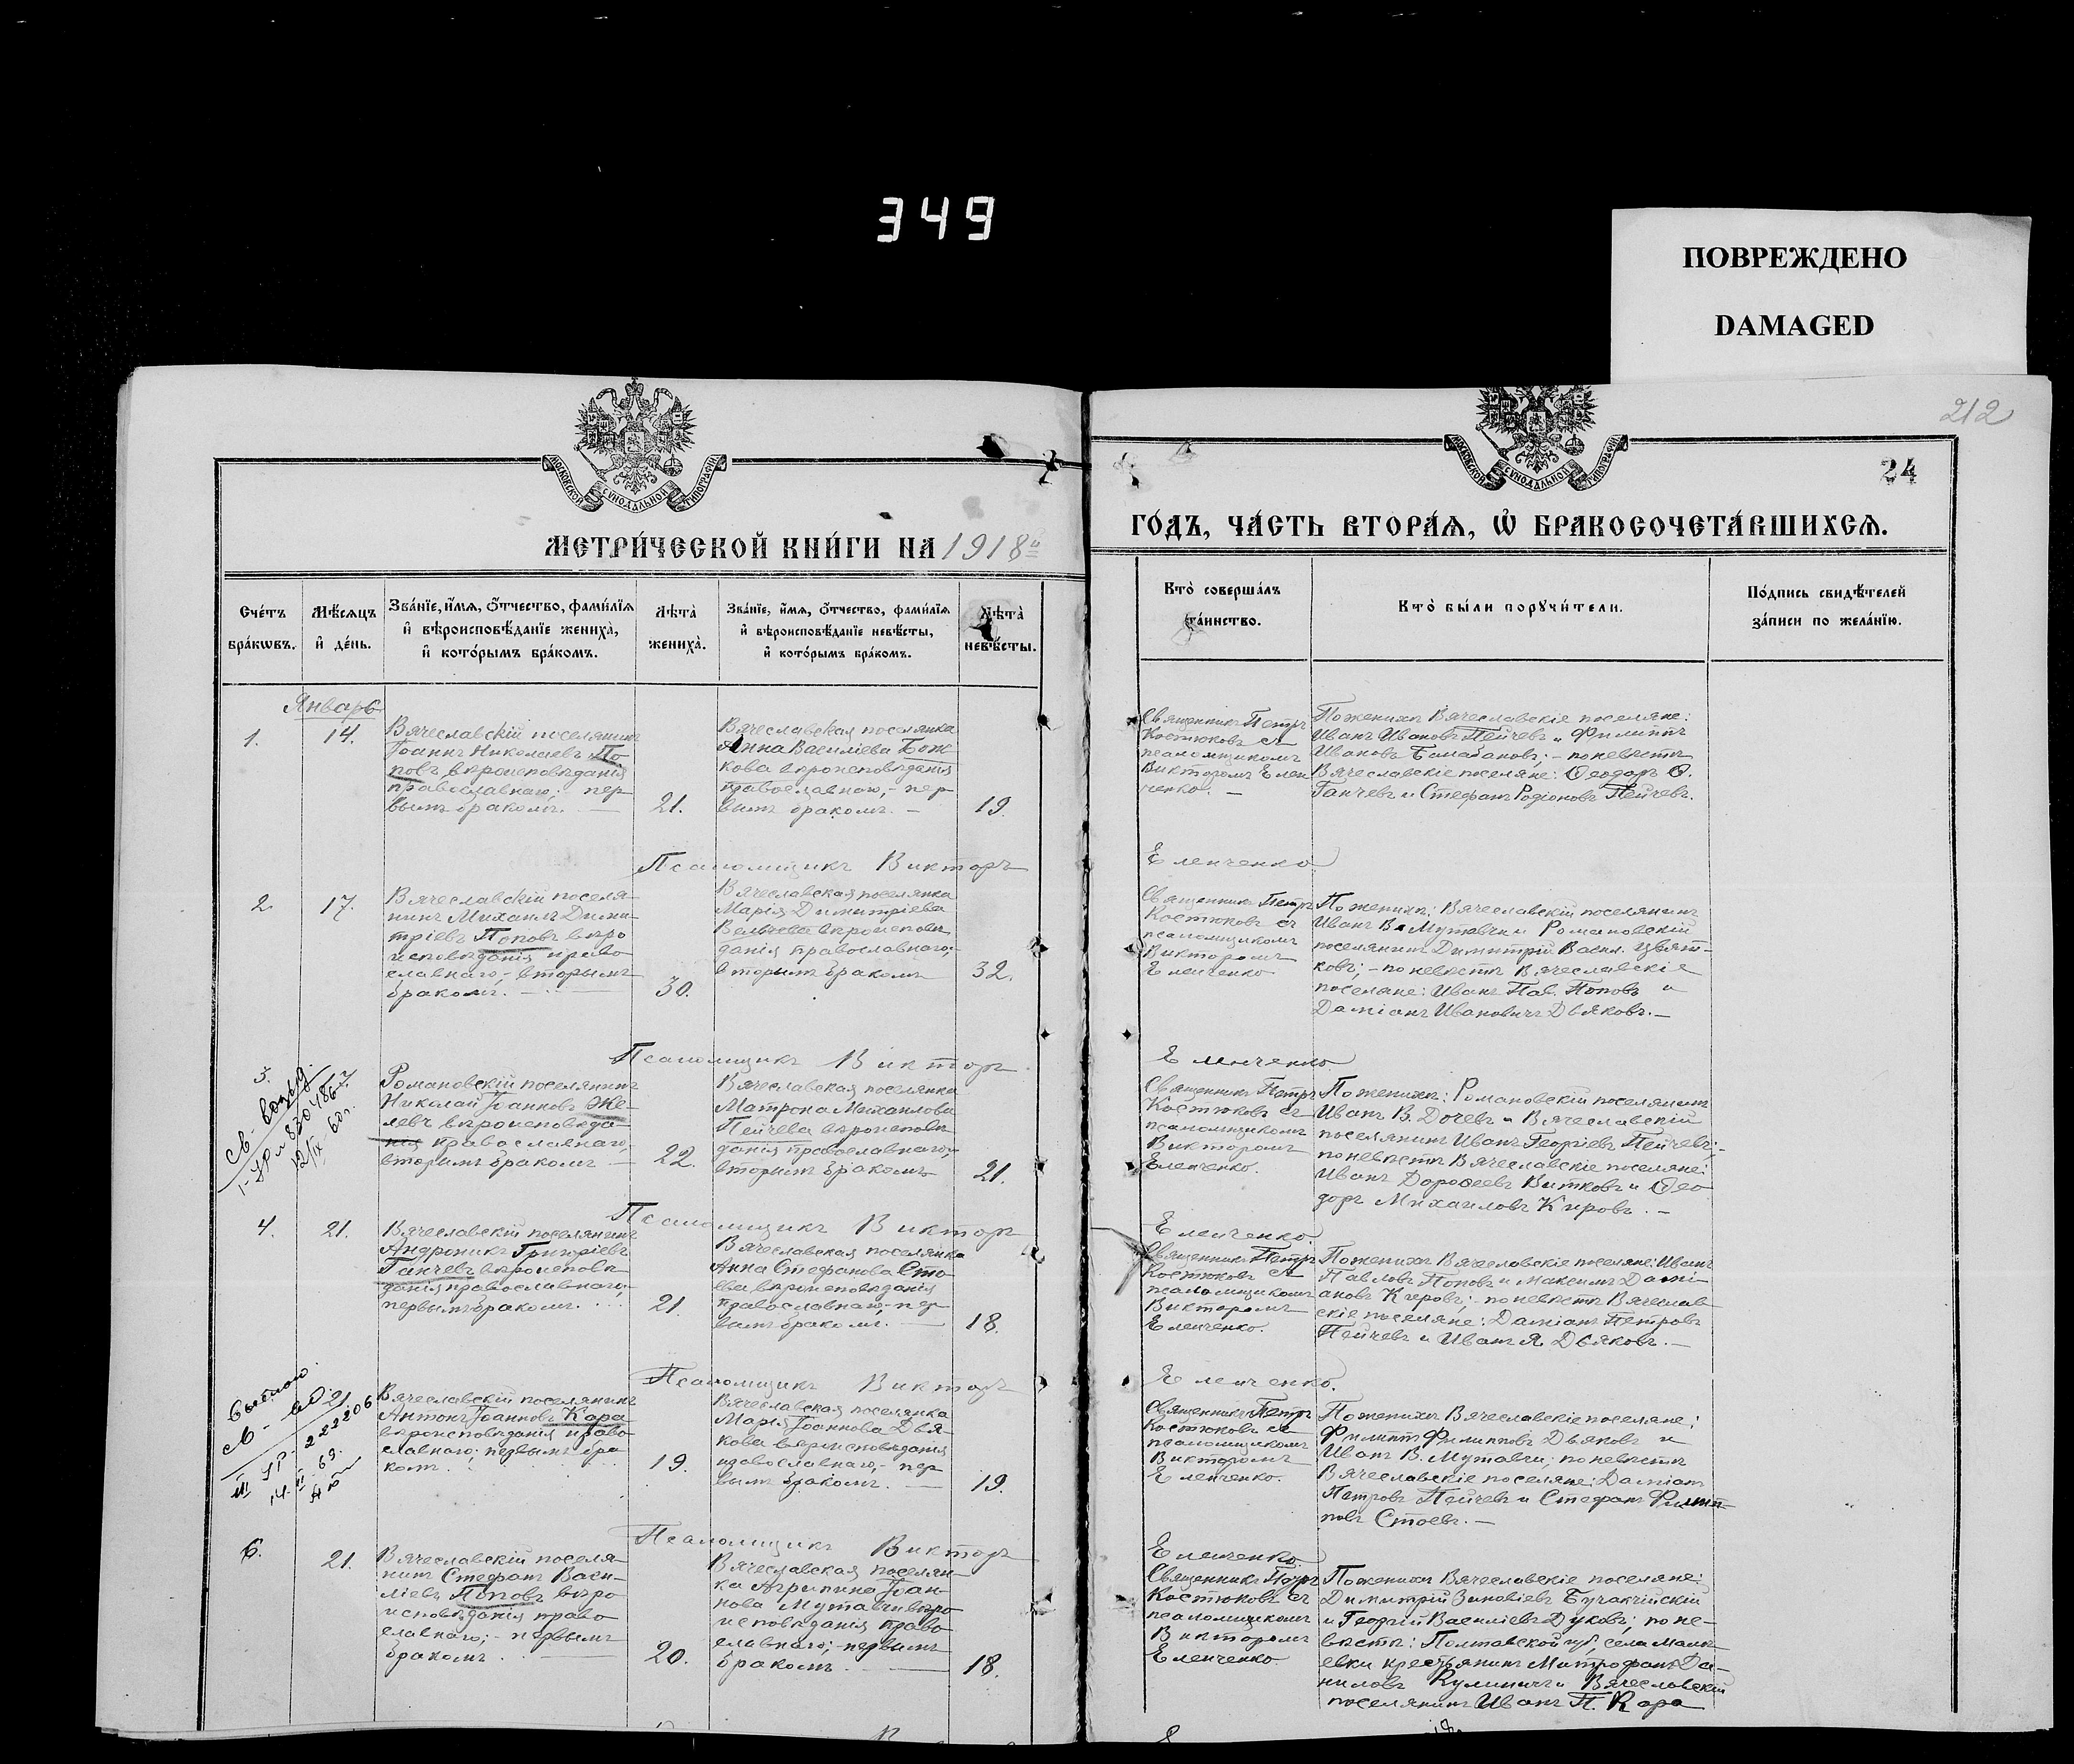 349
ПОВРЕЖДЕНО
DAMAGED
212
24
МОСКОВСКОЙ СѴНОДАЛЬНОЙ ТИПОГРАФІИ
МОСКОВСКОЙ СѴНОДАЛЬНОЙ ТИПОГРАФІИ
МЕТРИ́ЧЕСКОЙ КНИ́ГИ НА 1918й
ГО́ДЪ, ЧА́СТЬ ВТОРА́Я, Ѡ҆ БРАКОСОЧЕТА́ВШИХСѦ.
Сче́тъ
бра́кѡвъ.
Мѣ́сяцъ
и҆ де́нь.
Зва́нїе, и҆́мѧ, ѻ҆́тчество, фами́лїѧ
и҆ вѣроисповѣ́данїе жениха̀,
и҆ кото́рымъ бра́комъ.
Лѣта̀
жениха̀.
Зва́нїе, и҆́мѧ, ѻ҆́тчество, фами́лїѧ
и҆ вѣроисповѣ́данїе невѣ́сты,
и҆ кото́рымъ бра́комъ.
Лѣта̀
невѣ́сты.
Кто̀ соверша́лъ
та́инство.
Кто̀ бы́ли порꙋчи́тели.
По́дпись свидѣ́телей
за́писи по жела́нїю.
Январь
1.
14.
Вячеславскій поселянинъ
Іоаннъ Николаевъ По
повъ вѣроисповѣданія
православнаго; пер
вымъ бракомъ. —
21.
Вячеславская поселянка
Анна Василіева Бож
кова вѣроисповѣданія
православнаго, - пер
вымъ бракомъ. —
19.
Священникъ Петръ
Костюковъ съ
псаломщикомъ
Викторомъ Елен
ченко. —
По женихѣ Вячеславскіе поселяне:
Иванъ Ивановъ Пейчевъ и Филиппъ
Ивановъ Балабановъ; - по невѣстѣ
Вячеславскіе поселяне: Ѳеодоръ Ѳ.
Ганчевъ и Стефанъ Родіоновъ Пейчевъ.
Псаломщикъ Викторъ Еленченко
2.
17.
Вячеславскій поселя-
нинъ Михаилъ Дими-
тріевъ Поповъ вѣро
исповѣданія право
славнаго, - вторымъ
бракомъ. —
30.
Вячеславская поселянка
Марія Димитріева
Вельчева вѣроисповѣ
данія православнаго,-
вторымъ бракомъ
32.
Священникъ Петръ
Костюковъ съ
псаломщикомъ
Викторомъ
Еленченко
По женихѣ: Вячеславскій поселянинъ
Иванъ В. Мутавчи и Романовскій
поселянинъ Димитрій Васил. Цвят-
ковъ; - по невѣстѣ Вячеславскіе
поселяне: Иванъ Пав. Поповъ и
Даміанъ Ивановичъ Дьяковъ. —
Псаломщикъ Викторъ Еленченко
3.
Св-
12/IX 60г.
Романовскій поселянинъ
Николай Іоанновъ Же-
левъ вѣроисповѣда-
нія православнаго,
вторымъ бракомъ —
22.
Вячеславская поселянка
Матрона Михаилова
Пейчева вѣроисповѣ
данія православнаго,
вторымъ бракомъ
21.
Священникъ Петръ
Костюковъ съ
псаломщикомъ
Викторомъ
Еленченко.
По женихѣ: Романовскій поселянинъ
Иванъ В. Дочевъ и Вячеславскій
поселянинъ Иванъ Георгіевъ Пейчевъ; -
по невѣстѣ Вячеславскіе поселяне:
Иванъ Дороѳеевъ Витковъ и Ѳео
доръ Михаиловъ Кировъ. —
Псаломщикъ Викторъ Еленченко.
4.
21.
Вячеславскій поселянинъ
Андроникъ Григоріевъ
Ганчевъ вѣроисповѣ
данія православнаго,
первымъ бракомъ.
21.
Вячеславская поселянка
Анна Стефанова Сто-
ева вѣроисповѣданія
православнаго, - пер
вымъ бракомъ. —
18.
Священникъ Петръ
Костюковъ съ
псаломщикомъ
Викторомъ
Еленченко.
По женихѣ Вячеславскіе поселяне: Иванъ
Павловъ Поповъ и Максимъ Дамі-
ановъ Кировъ; - по невѣстѣ Вячеслав-
скіе поселяне: Даміанъ Петровъ
Пейчевъ и Иванъ Я. Дьяковъ. —
Псаломщикъ Викторъ Еленченко.
21.
Вячеславскій поселянинъ
Антонъ Іоанновъ Кара
вѣроисповѣданія право
славнаго; первымъ бра
комъ.
19.
Вячеславская поселянка
Марія Іоаннова Дья-
кова вѣроисповѣданія
православнаго, - пер
вымъ бракомъ. —
19.
Священникъ Петръ
Костюковъ съ
псаломщикомъ
Викторомъ
Еленченко.
По женихѣ Вячеславскіе поселяне:
Филиппъ Филипповъ Дьяковъ и
Иванъ В. Мутавчи; по невѣстѣ
Вячеславскіе поселяне: Даміанъ
Петровъ Пейчевъ и Стефанъ Филип-
повъ Стоевъ. —
Псаломщикъ Викторъ Еленченко.
6.
21.
Вячеславскій поселя-
нинъ Стефанъ Васи-
ліевъ Поповъ вѣро
исповѣданія право
славнаго; - первымъ
бракомъ. —
20.
Вячеславская поселян-
ка Агрипина Іоан-
нова Мутавчи вѣро
исповѣданія право
славнаго; - первымъ
бракомъ. —
18.
Священникъ Петръ
Костюковъ съ
псаломщикомъ
Викторомъ
Еленченко.
По женихѣ Вячеславскіе поселяне:
Димитрій Зиновіевъ Бучакчійскій
и Георгій Василіевъ Дуковъ; по не-
вѣстѣ: Полтавской губ, села
крестьянинъ Митрофанъ Да-
ниловъ Кулиничъ и Вячеславскій
поселянинъ Иванъ П. Кара